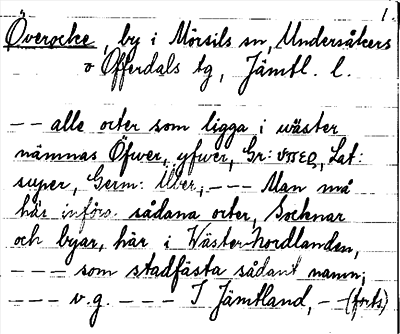 1.
Överocke, by i Mörsils sn, Undersåkers
o Offerdals tg, Jämtl. l.
-- alle orter som ligga i wäster
nämnas Öfwer, yfwer, Gr: υπερ, Lat:
super, Germ: Über, --- Man må
här införs. sådana orter, Socknar
och byar, här i Wäster-Nordlanden,
--- som stadfästa sådant namn;
--- v.g. --- I Jämtland, - (forts)